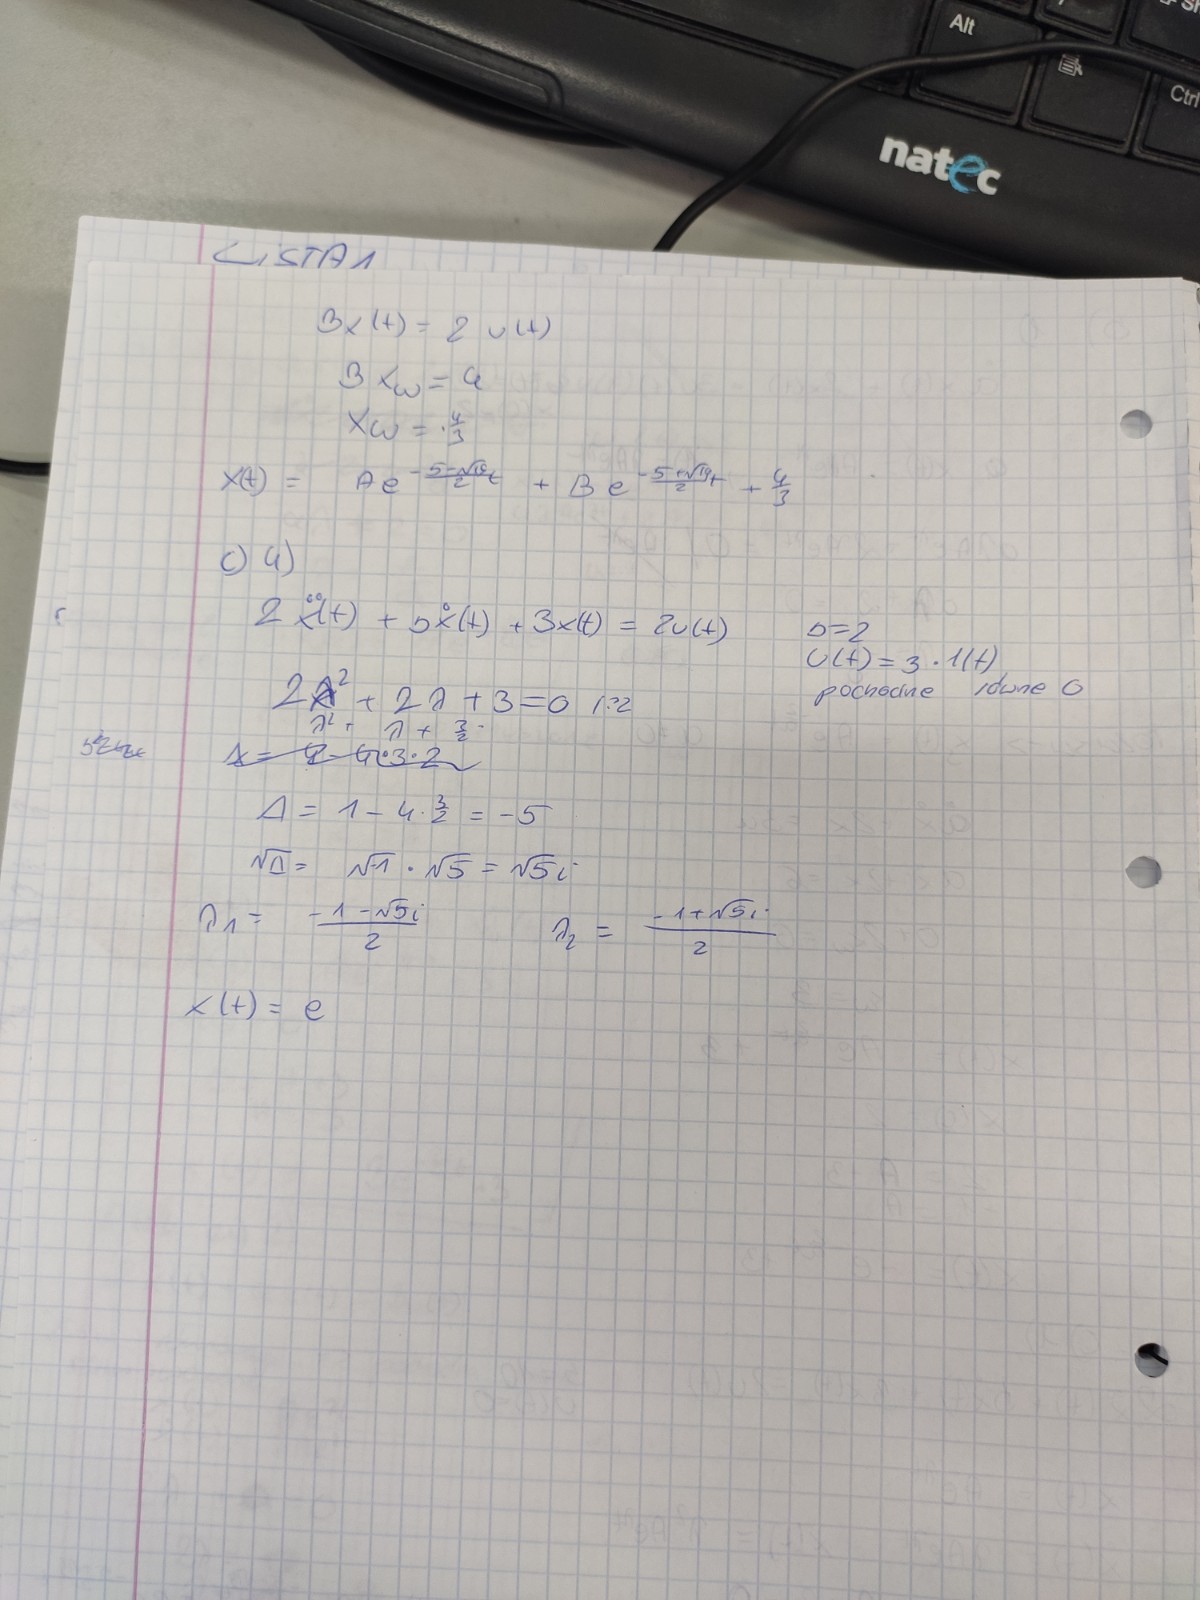 Alt
Ctrl
natec
LISTA 1
3x(t) = 2 u(t)
3 xω = 4
xω = 4/3
x(t) = A e^(-5-√19)/2 t + B e^(-5+√19)/2 t + 4/3
c) 4)
2ẍ(t) + bẋ(t) + 3x(t) = 2u(t) b=2
u(t) = 3 · 1(t)
pochodne równe 0
2λ² + 2λ + 3 = 0 /:2
λ² + λ + 3/2
Δ = 1 - 4 · 3/2 = -5
√Δ = √-1 · √5 = √5 i
λ1 = (-1 - √5 i)/2 λ2 = (-1 + √5 i)/2
x(t) = e